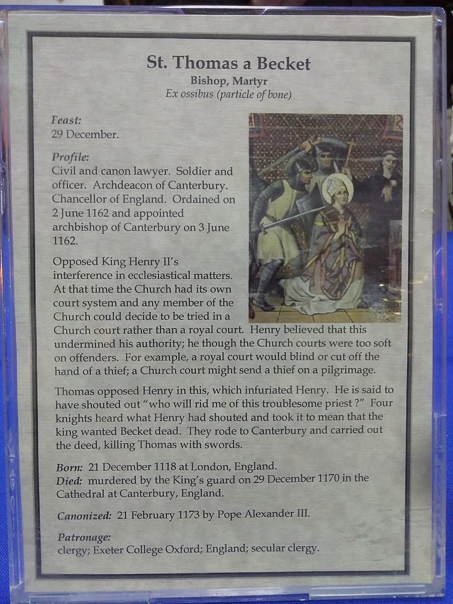 St. Thomas a Becket
Bishop, Martyr
Ex ossibus (particle of bone)
Feast:
29 December.
Profile:
Civil and canon lawyer. Soldier and
officer. Archdeacon of Canterbury.
Chancellor of England. Ordained on
2 June 1162 and appointed
archbishop of Canterbury on 3 June
1162.
Opposed King Henry II's
interference in ecclesiastical matters.
At that time the Church had its own
court system and any member of the
Church could decide to be tried in a
Church court rather than a royal court. Henry believed that this
undermined his authority; he though the Church courts were too soft
on offenders. For example, a royal court would blind or cut off the
hand of a thief; a Church court might send a thief on a pilgrimage.
Thomas opposed Henry in this, which infuriated Henry. He is said to
have shouted out "who will rid me of this troublesome priest?" Four
knights heard what Henry had shouted and took it to mean that the
king wanted Becket dead. They rode to Canterbury and carried out
the deed, killing Thomas with swords.
Born: 21 December 1118 at London, England.
Died: murdered by the King's guard on 29 December 1170 in the
Cathedral at Canterbury, England.
Canonized: 21 February 1173 by Pope Alexander III.
Patronage:
clergy; Exeter College Oxford; England; secular clergy.